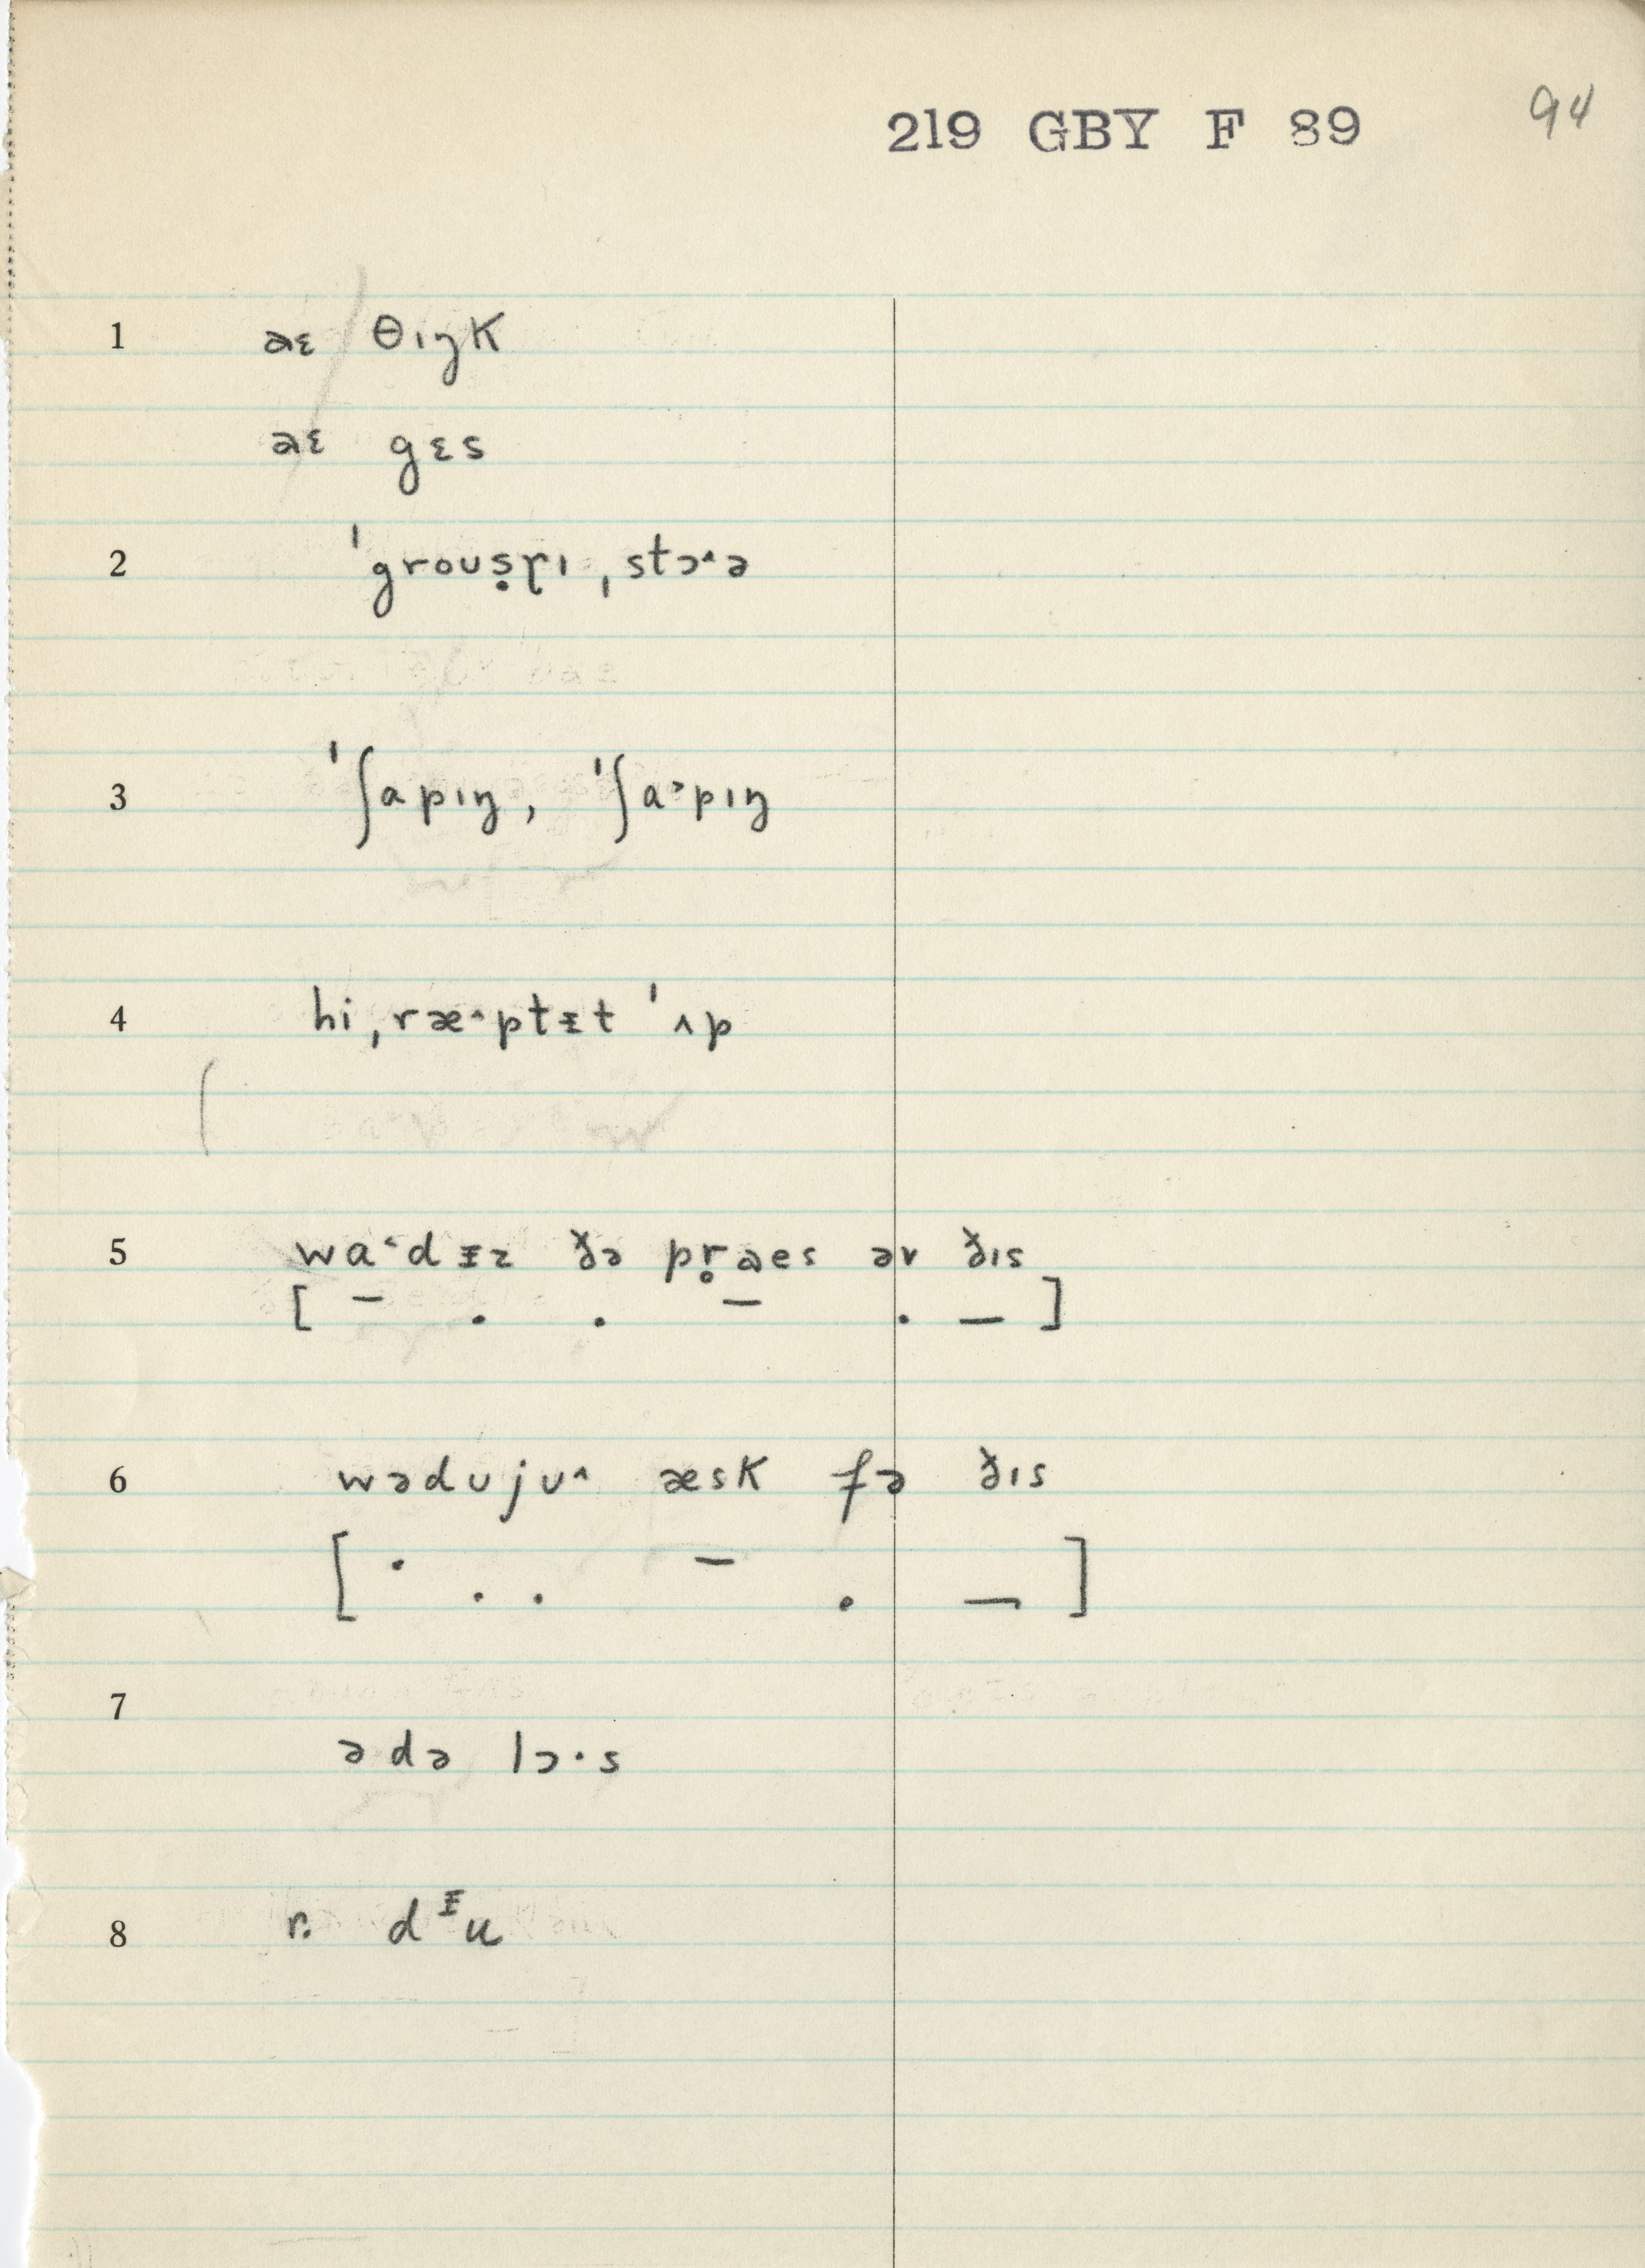 219 GBY F 89 94
1 aɛ θɪŋk
aɛ gɛs
2 ˈgroʊṣɽɪ ˌstɔ˄ə
3 ˈʃapɪŋ, ˈʃa˃pɪŋ
4 hi ˌræ˄ptᵻt ˈʌp
5 wa˂dᵻz ðə pr̥aes əv ðɪs
[ – . . – . – ]
6 wədʊjʊ˄ æsk fə ðɪs
[ . . . – . – ]
7
ədə lɔ·s
8 r. dᵻu